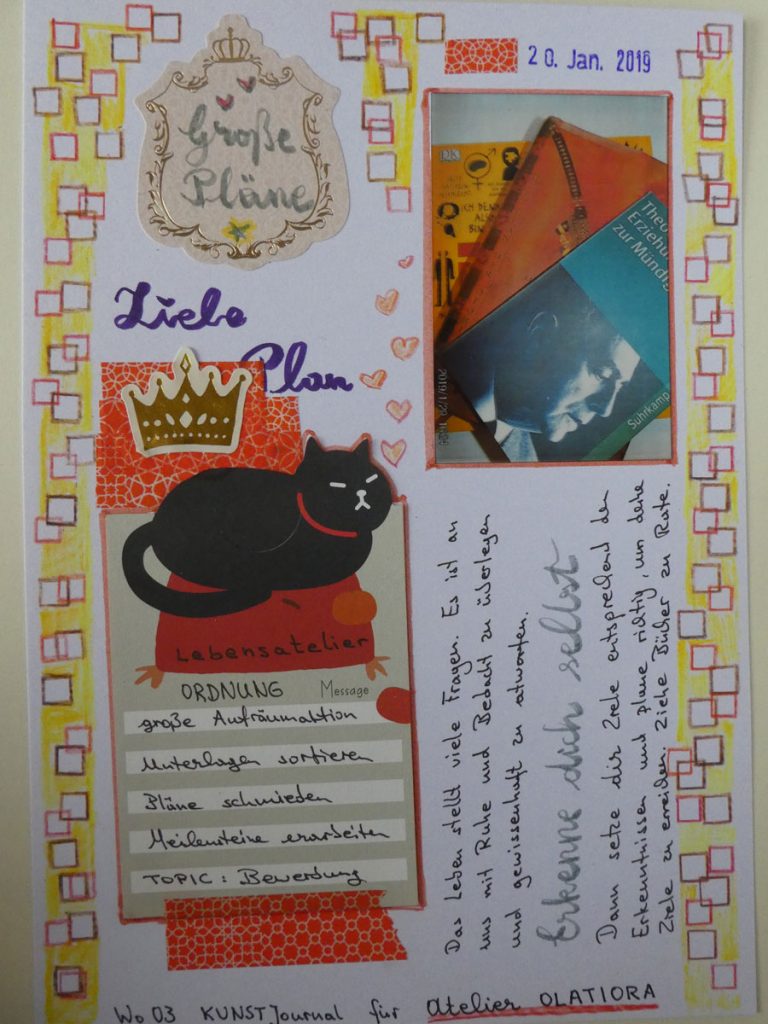 Große
Pläne
20. Jan. 2019
DK
ICH DENKE
ALSO
BIN
Theo
Erziehu
zur Mündig
Suhrkamp
Liebe
Plan
Lebensatelier
ORDNUNG Message
große Aufräumaktion
Unterlagen sortieren
Pläne schmieden
Meilensteine erarbeiten
TOPIC: Bewerbung
Das Leben stellt viele Fragen. Es ist an
uns mit Ruhe und Bedacht zu überlegen
und gewissenhaft zu antworten.
Erkenne dich selbst
Dann setze dir Ziele entsprechend den
Erkenntnissen und plane richtig, um deine
Ziele zu erreichen. Ziehe Bücher zu Rate.
Wo 03 KUNSTJournal für Atelier OLATIORA